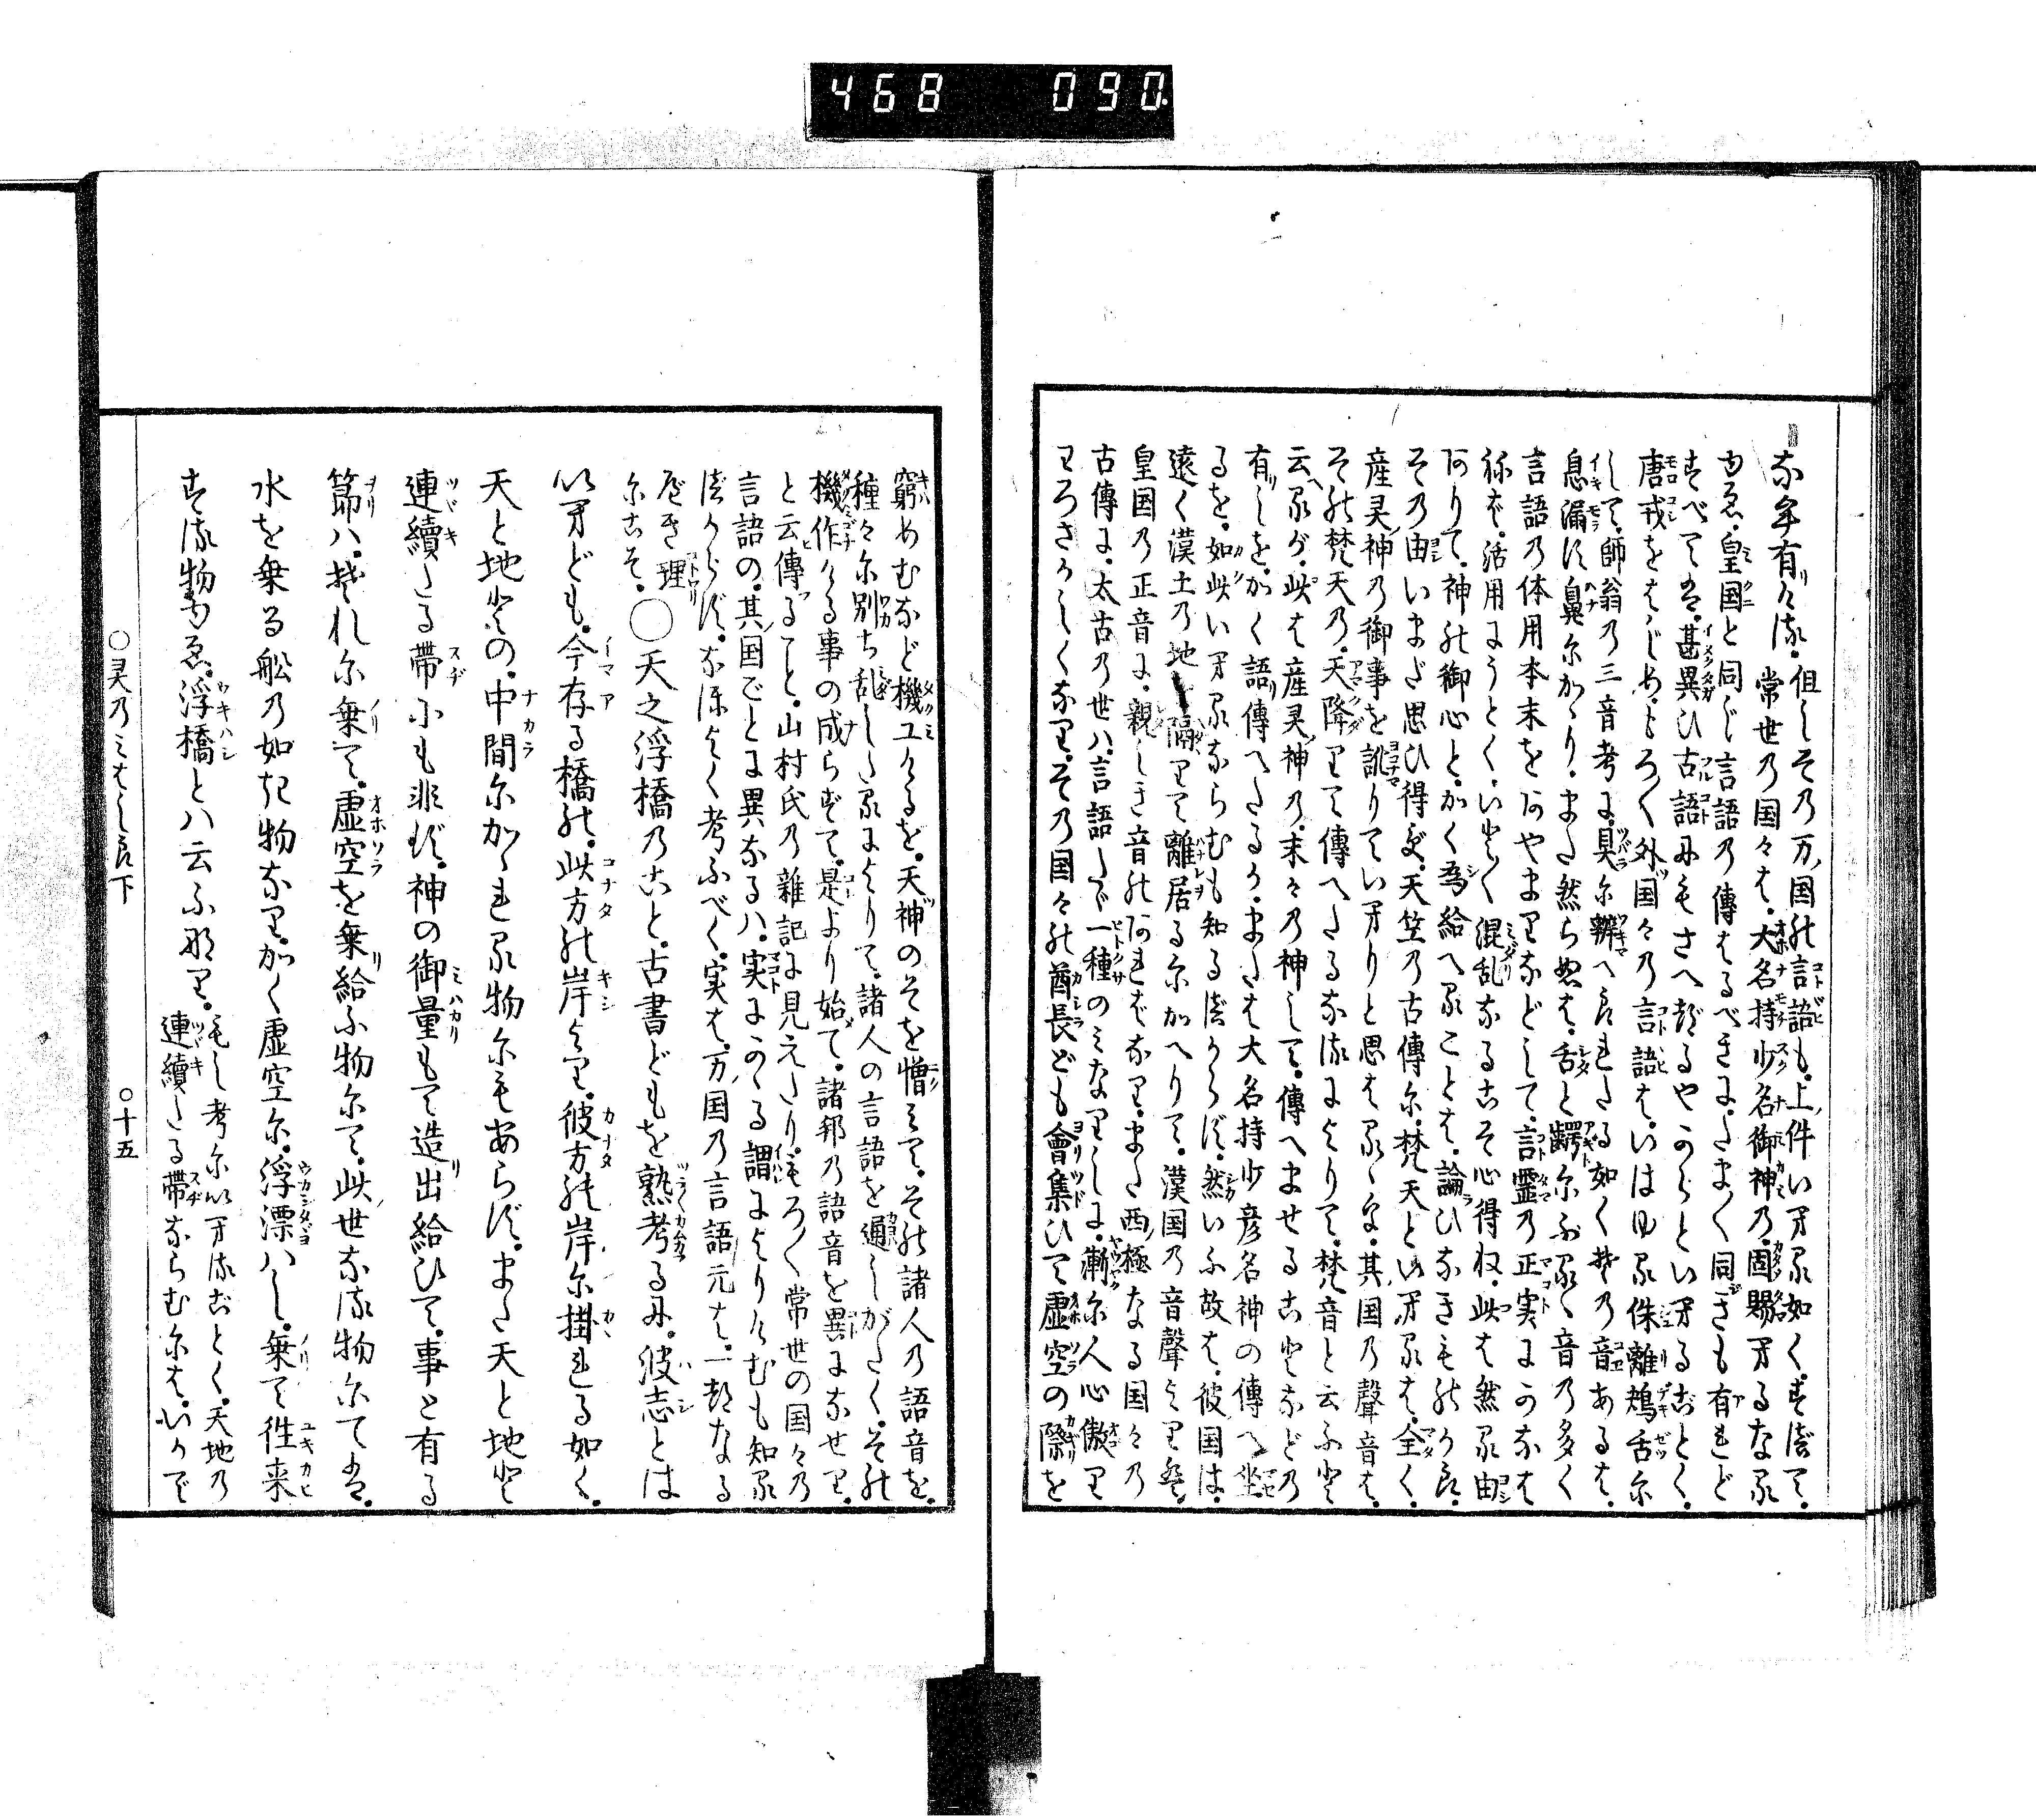 468 090
なむ有ける。但しその万国の言語も。上件いへる如く。すべて。
常世の国々は。大名持少名御神の。固賜へるなる
ゆゑ。皇国と同じ言語の傳はるべきに。たま〱同きも有れど
すべては。甚異ひ古語にもさへずるやからといへるごとく。
唐戎をはじめ。もろ〱外国々の言語は。いはゆる侏離鴂舌に
して。師翁の三音考に。具に辨へられたる如く其の音あるは。
息漏れ鼻にかゝり。また然らぬは。舌と齶にふるゝ音の多く
言語の体用本末をあやまりなどして。言霊の正実にかなは
ねば。活用にうとく。いたく混乱なるこそ心得ね。此は然る由
ありて。神の御心と。かく為給へることは。論ひなきものから。
その由いまだ思ひ得ず。天竺の古傳に。梵天といへるは。全く
産灵神の御事を訛りていへりと思はるゝを。其国の聲音は。
その梵天の。天降りて傳へたるなるによりて。梵音と云ふと
云へるが。此は産灵神の。末々の神して。傳へませることなどの
有しを。かく語り傳へたるか。または大名持少彦名神の傳へ坐
るを。如此いへるならむも知るべからず。然いふ故は。彼国は。
遠く漢土の地を隔りて離居るにかへりて。漢国の音聲よりも。
皇国の正音に。親しき音のあればなり。また西極なる国々の
古傳に。太古の世ハ。言語たゞ一種のみなりしに。漸に人心傲り
わろさかしくなり。その国々の酋長ども會集ひて虚空の際を
窮めむなど機工けるを。天神のそを憎みて。その諸人の語音を。
種々に別ち乱したるによりて。諸人の言語を通しがたく。その
機作ける事の成らずて。是より始て。諸邦の語音を異になせり。
と云傳ること。山村氏の雑記に見えたり。もろ〱常世の国々の
言語の。其国ごとに異なるハ。実にかゝる謂によりけむも知る
べからず。なほよく考ふべく。実は。万国の言語元は。一都なる
べき理にこそ。
○天之浮橋のこと。古書どもを熟考るに。彼志とは
いへども。今存る橋の。此方の岸より。彼方の岸に掛れる如く。
天と地との。中間にかゝれる物にもあらず。また天と地と
連續たる帯にも非ず。神の御量もて造出給ひて。事と有る
節ハ。それに乗て。虚空を乗給ふ物にて。此世なる物にては。
水を乗る舩の如き物なり。かく虚空に。浮漂ハし。乗て徃来
する物ゆゑ。浮橋とハ云ふなり。もし考にいへるごとく。天地の
連續たる帯ならむには。いかで
○灵乃みはしら下 ○十五